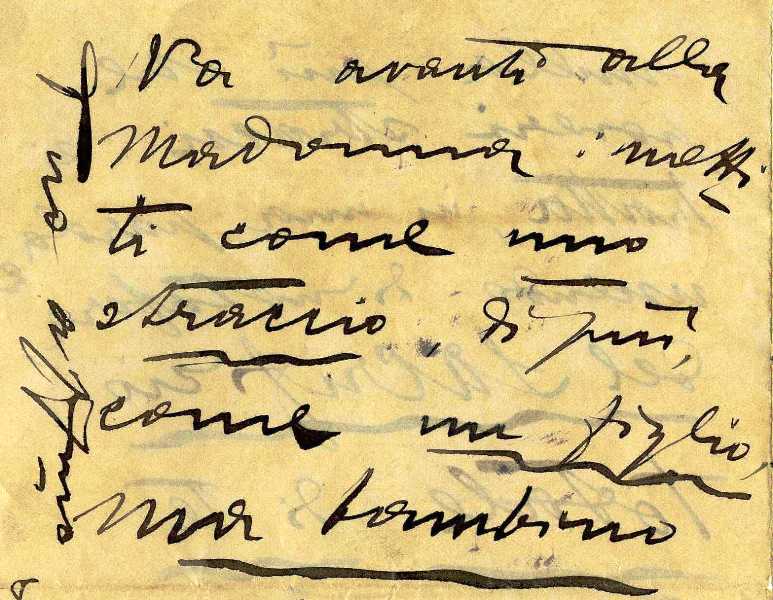 Va avanti alla
Madonna: metti
ti come uno
straccio, di più,
come un figlio,
ma bambino